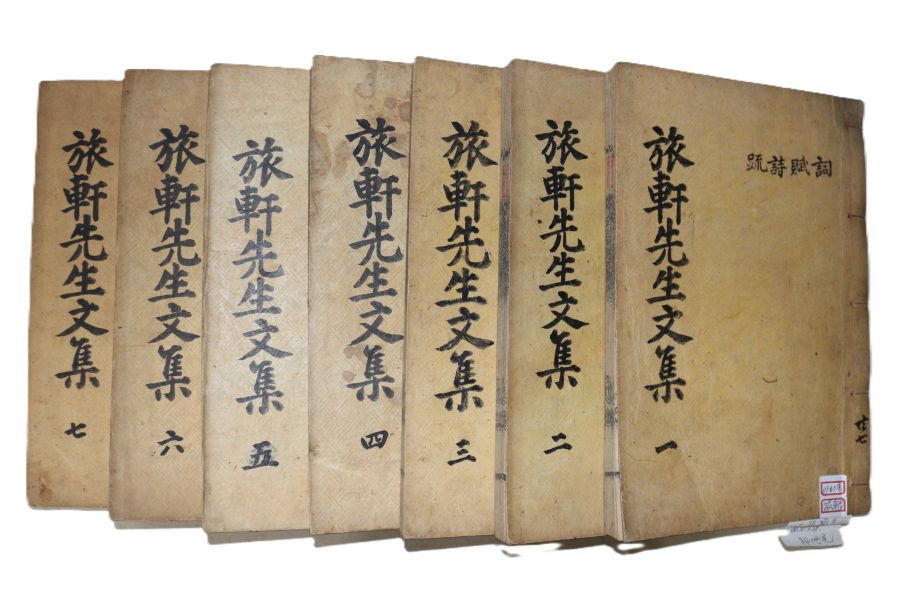 詞賦詩疏
旅軒先生文集 一
共七
旅軒先生文集 二
旅軒先生文集 三
旅軒先生文集 四
旅軒先生文集 五
旅軒先生文集 六
旅軒先生文集 七